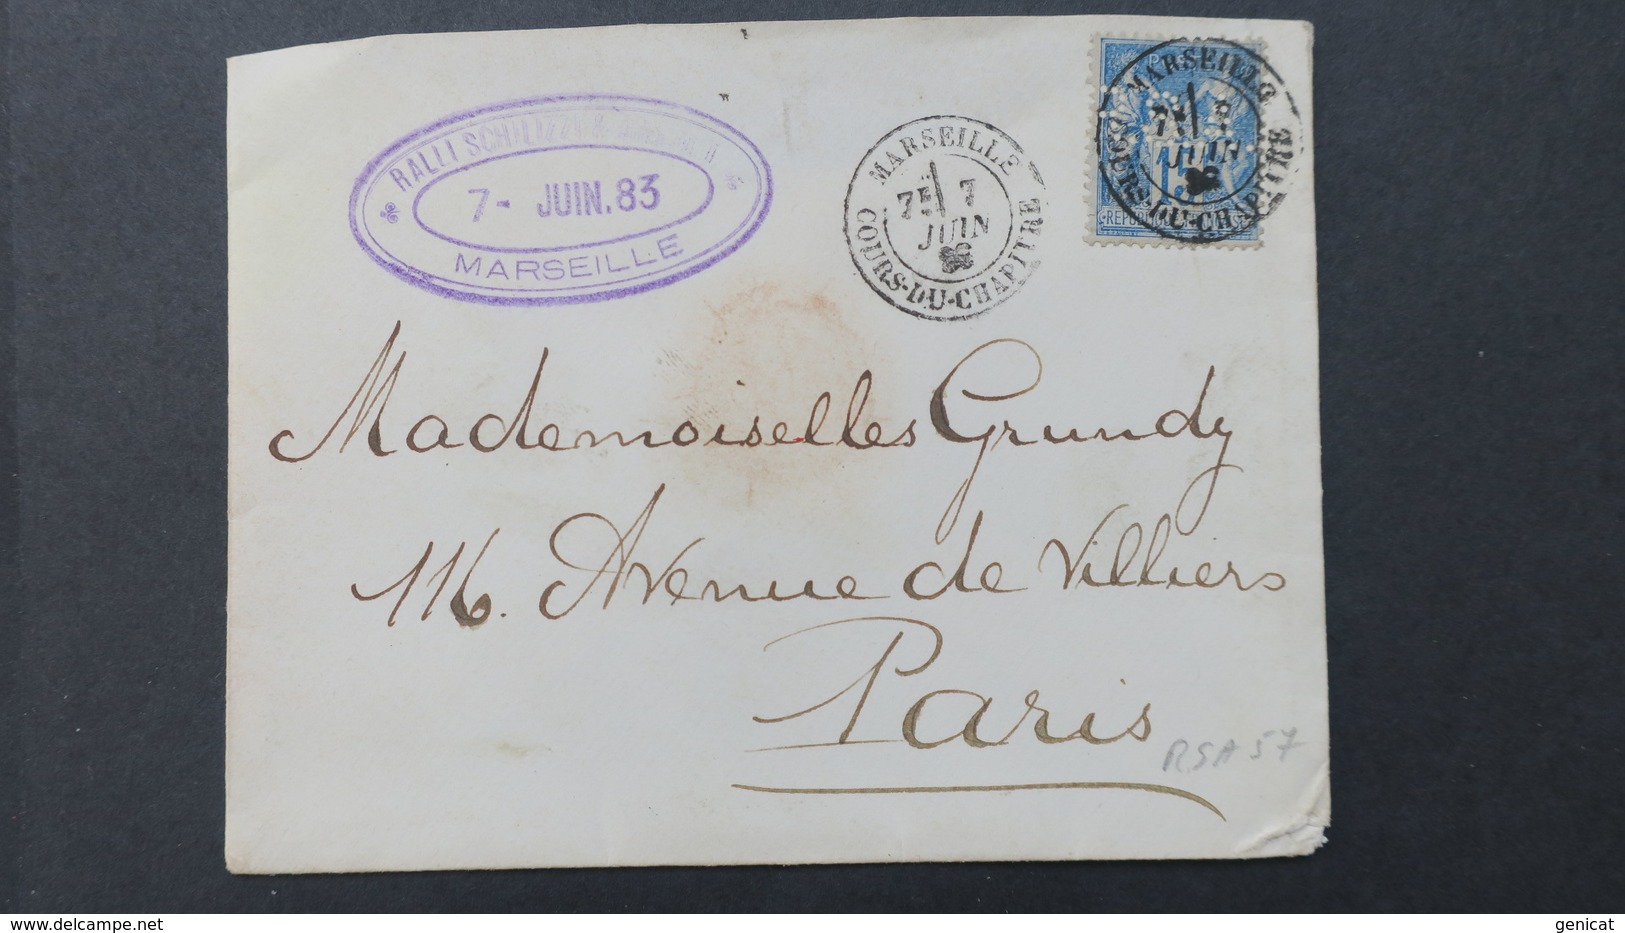 RALLI SCHILIZZI &
7- JUIN. 83
MARSEILLE
MARSEILLE
7E 7
JUIN
COURS-DU-CHAPITRE
MARSEILLE
JUIN
15
COURS-DU-CHAPITRE
REPUB
Mademoiselles Grundy
116. Avenue de Villiers
Paris
RSA 57
genicat
www.delcampe.net